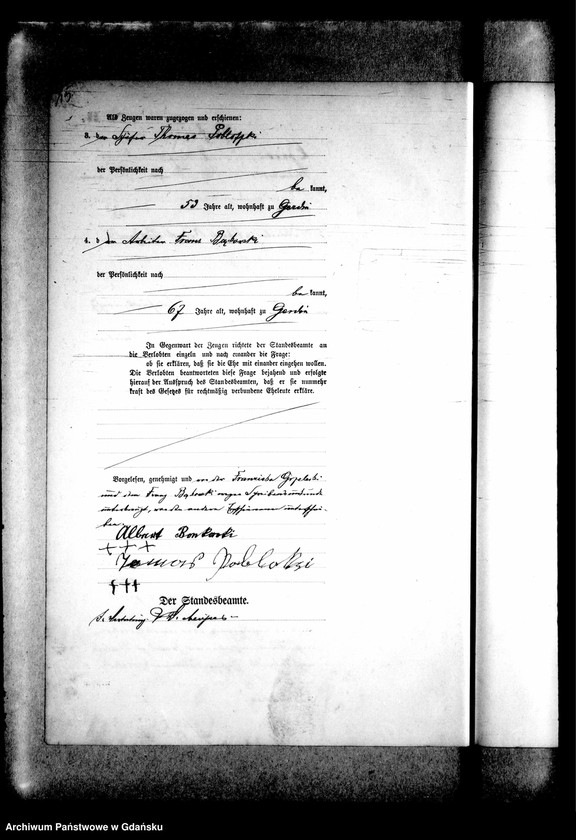 Als Zeugen waren zugezogen und erschienen:
3. der Schäfer Thomas
der Persönlichkeit nach
be kannt,
53 Jahre alt, wohnhaft zu
4. d Arbeiter Franz
der Persönlichkeit nach
be kannt,
67 Jahre alt, wohnhaft zu
In Gegenwart der Zeugen richtete der Standesbeamte an
die Verlobten einzeln und nach einander die Frage:
ob sie erklären, daß sie die Ehe mit einander eingehen wollen.
Die Verlobten beantworteten diese Frage bejahend und erfolgte
hierauf der Ausspruch des Standesbeamten, daß er sie nunmehr
kraft des Gesetzes für rechtmäßig verbundene Eheleute erkläre.
Vorgelesen, genehmigt und von der Franziska
und dem Franz wegen
unterkreuzt, von den anderen unterschrie-
ben.
Albert Bonkowski
+++
+++
Der Standesbeamte.
Archiwum Państwowe w Gdańsku